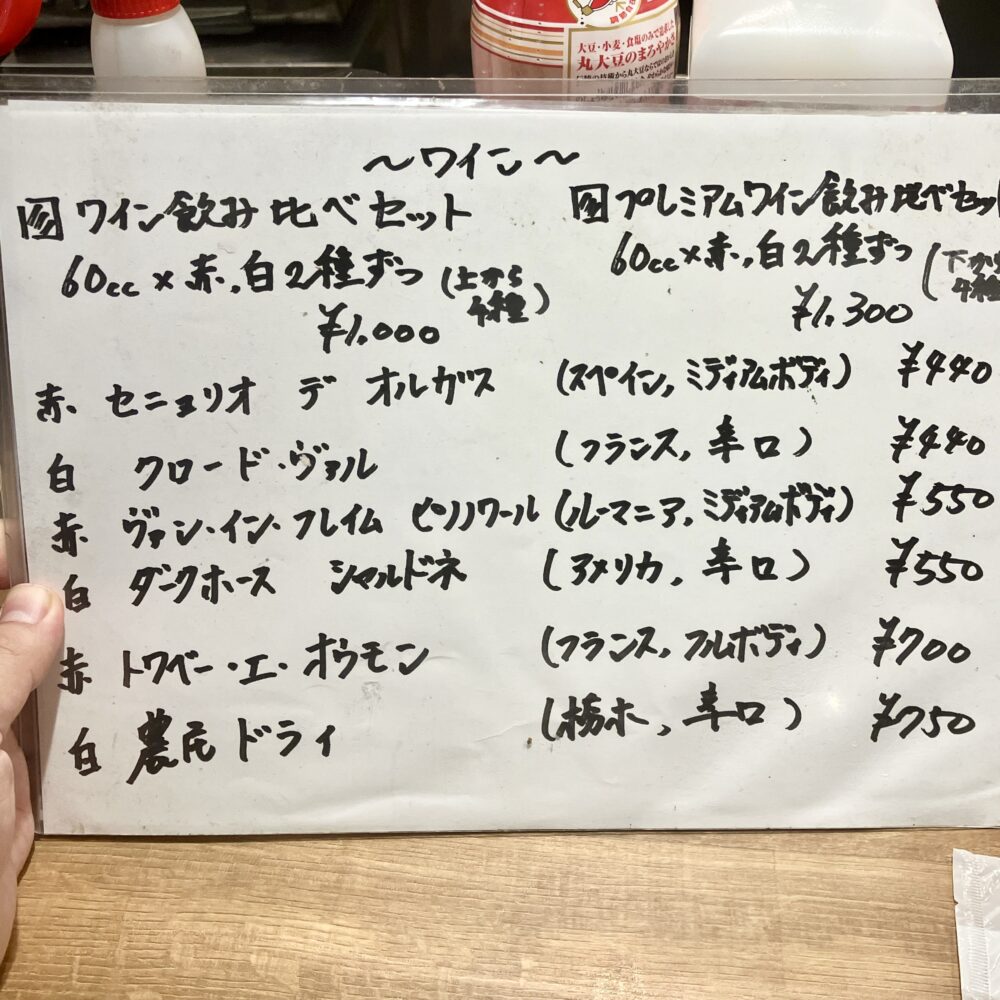 大豆・小麦・食塩のみで追求した
丸大豆のまろやかさ
〜ワイン〜
ワイン飲み比べセット
60cc×赤,白2種ずつ (上から4種)
¥1,000
プレミアムワイン飲み比べセット
60cc×赤,白2種ずつ (下から4種
¥1,300
赤 セニョリオ デ オルガス (スペイン,ミディアムボディ) ¥440
白 クロード・ヴァル (フランス,辛口) ¥440
赤 ヴァン・イン・フレイム ピノノワール (ルーマニア,ミディアムボディ) ¥550
白 ダークホース シャルドネ (アメリカ,辛口) ¥550
赤 トワベー・エ・オウモン (フランス,フルボディ) ¥700
白 農民ドライ (栃木,辛口) ¥750